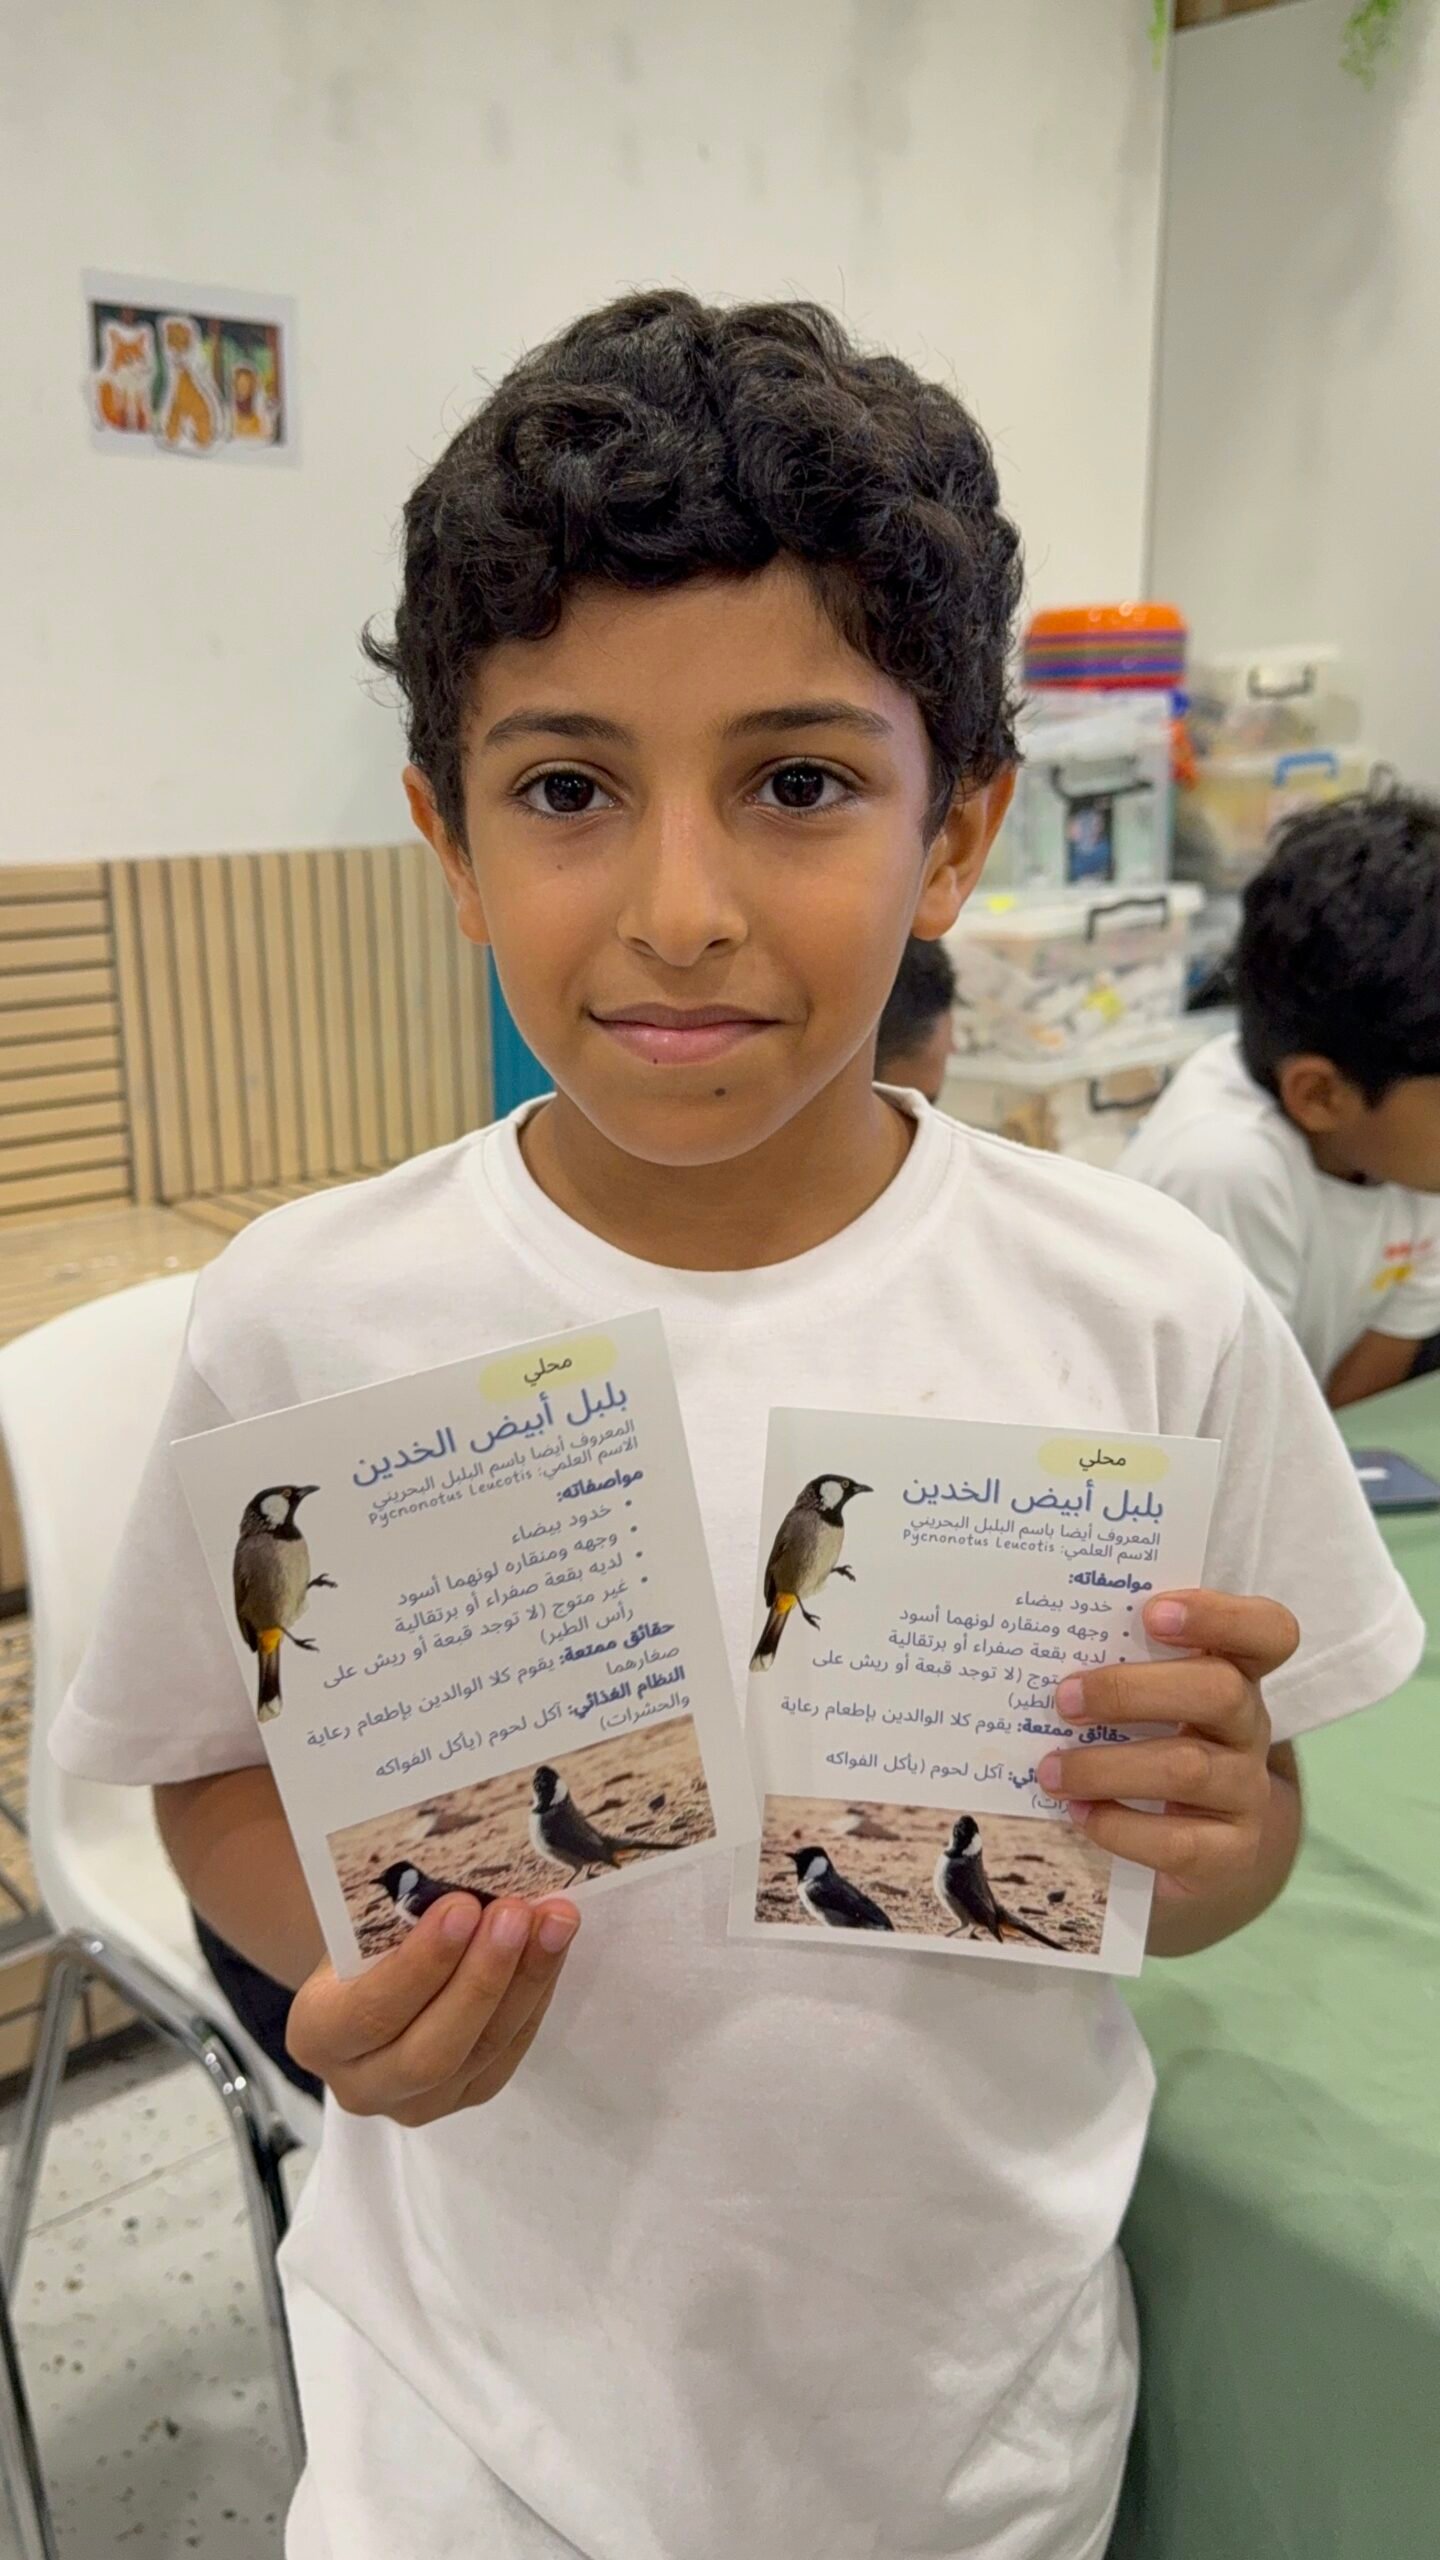 محلي
بلبل أبيض الخدين
المعروف أيضا باسم البلبل البحريني
الاسم العلمي: Pycnonotus Leucotis
مواصفاته:
• خدود بيضاء
• وجهه ومنقاره لونهما أسود
• لديه بقعة صفراء أو برتقالية
• غير متوج (لا توجد قبعة أو ريش على
رأس الطير)
حقائق ممتعة: يقوم كلا الوالدين بإطعام رعاية
صغارهما
النظام الغذائي: آكل لحوم (يأكل الفواكه
والحشرات)
محلي
بلبل أبيض الخدين
المعروف أيضا باسم البلبل البحريني
الاسم العلمي: Pycnonotus Leucotis
مواصفاته:
• خدود بيضاء
• وجهه ومنقاره لونهما أسود
• لديه بقعة صفراء أو برتقالية
متوج (لا توجد قبعة أو ريش على
الطير)
حقائق ممتعة: يقوم كلا الوالدين بإطعام رعاية
آكل لحوم (يأكل الفواكه